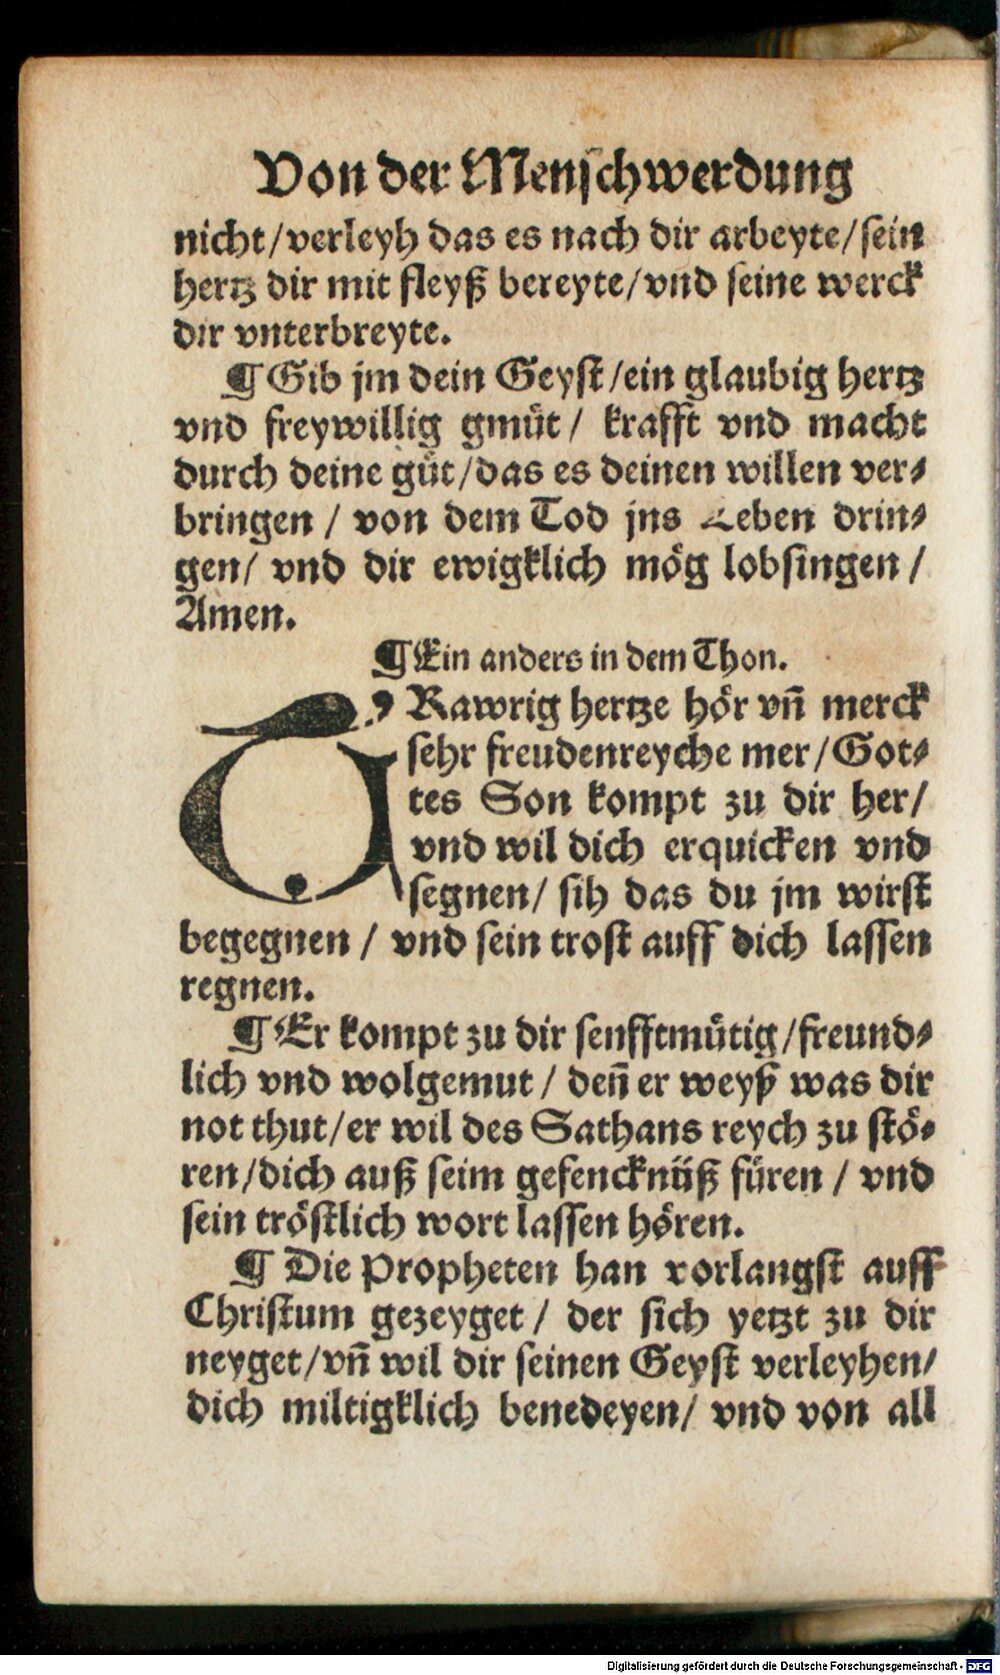 Von der Menſchwerdung
nicht/verleyh das es nach dir arbeyte/ſein
hertz dir mit fleyß bereyte/vnd ſeine werck
dir vnterbreyte.
¶ Gib jm dein Geyſt/ein glaubig hertz
vnd freywillig gmüt/ krafft vnd macht
durch deine güt/das es deinen willen ver⸗
bringen / von dem Tod jns Leben drin⸗
gen/ vnd dir ewigklich mög lobſingen /
Amen.
¶ Ein anders in dem Thon.
TRawrig hertze hör vñ merck
ſehr freudenreyche mer/Got⸗
tes Son kompt zu dir her/
vnd wil dich erquicken vnd
ſegnen/ ſih das du jm wirſt
begegnen / vnd ſein troſt auff dich laſſen
regnen.
¶ Er kompt zu dir ſenfftmütig/freund⸗
lich vnd wolgemut / deñ er weyß was dir
not thut/er wil des Sathans reych zu ſtö⸗
ren/dich auß ſeim gefencknüß füren / vnd
ſein tröſtlich wort laſſen hören.
¶ Die Propheten han vorlangſt auff
Chriſtum gezeyget / der ſich yetzt zu dir
neyget/vñ wil dir ſeinen Geyſt verleyhen/
dich miltigklich benedeyen/ vnd von all
Digitalisierung gefördert durch die Deutsche Forschungsgemeinschaft - DFG